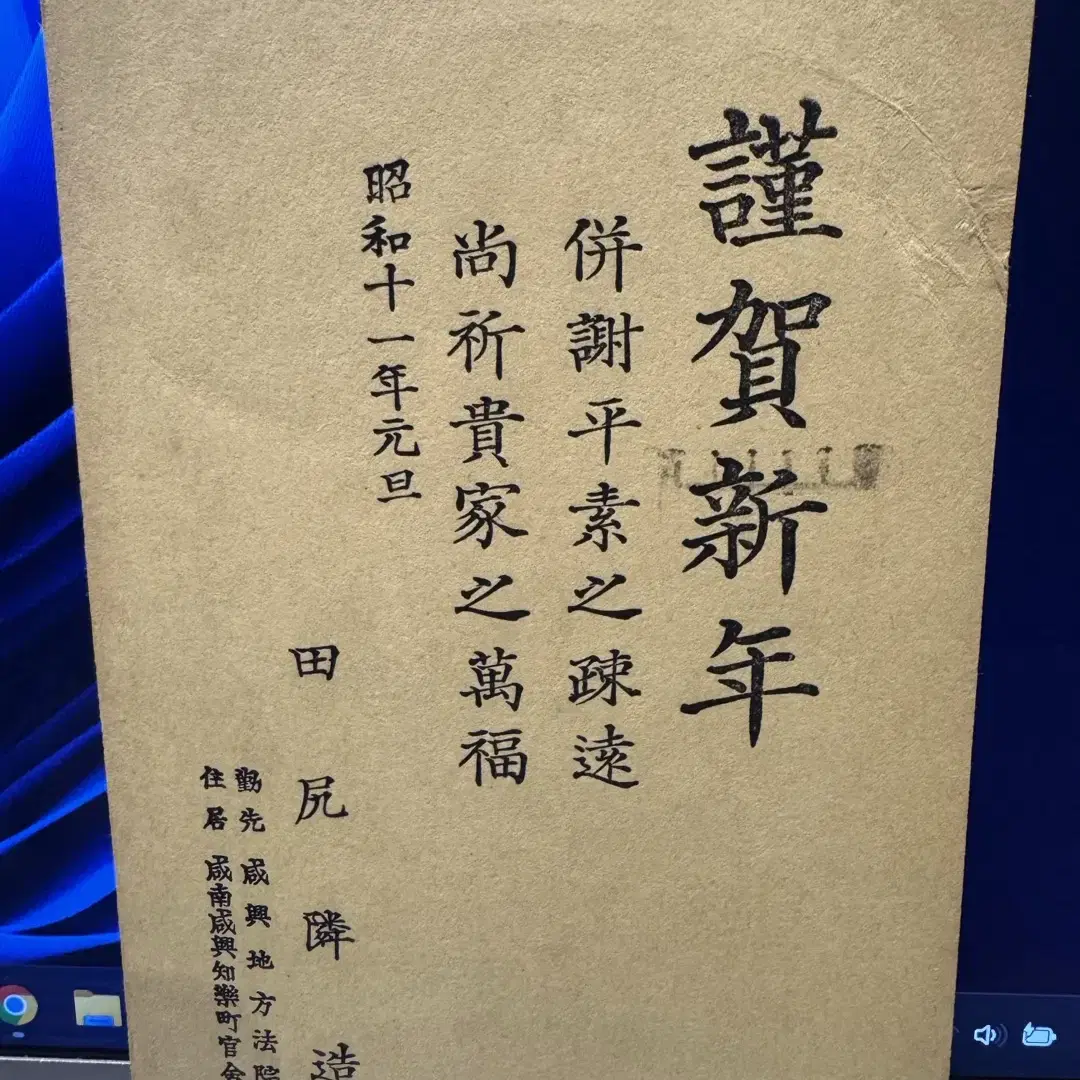 謹賀新年
併謝平素之疎遠
尚祈貴家之萬福
昭和十一年元旦
田尻隣造
勤先 咸興地方法院
住居 咸南咸興知樂町官舍